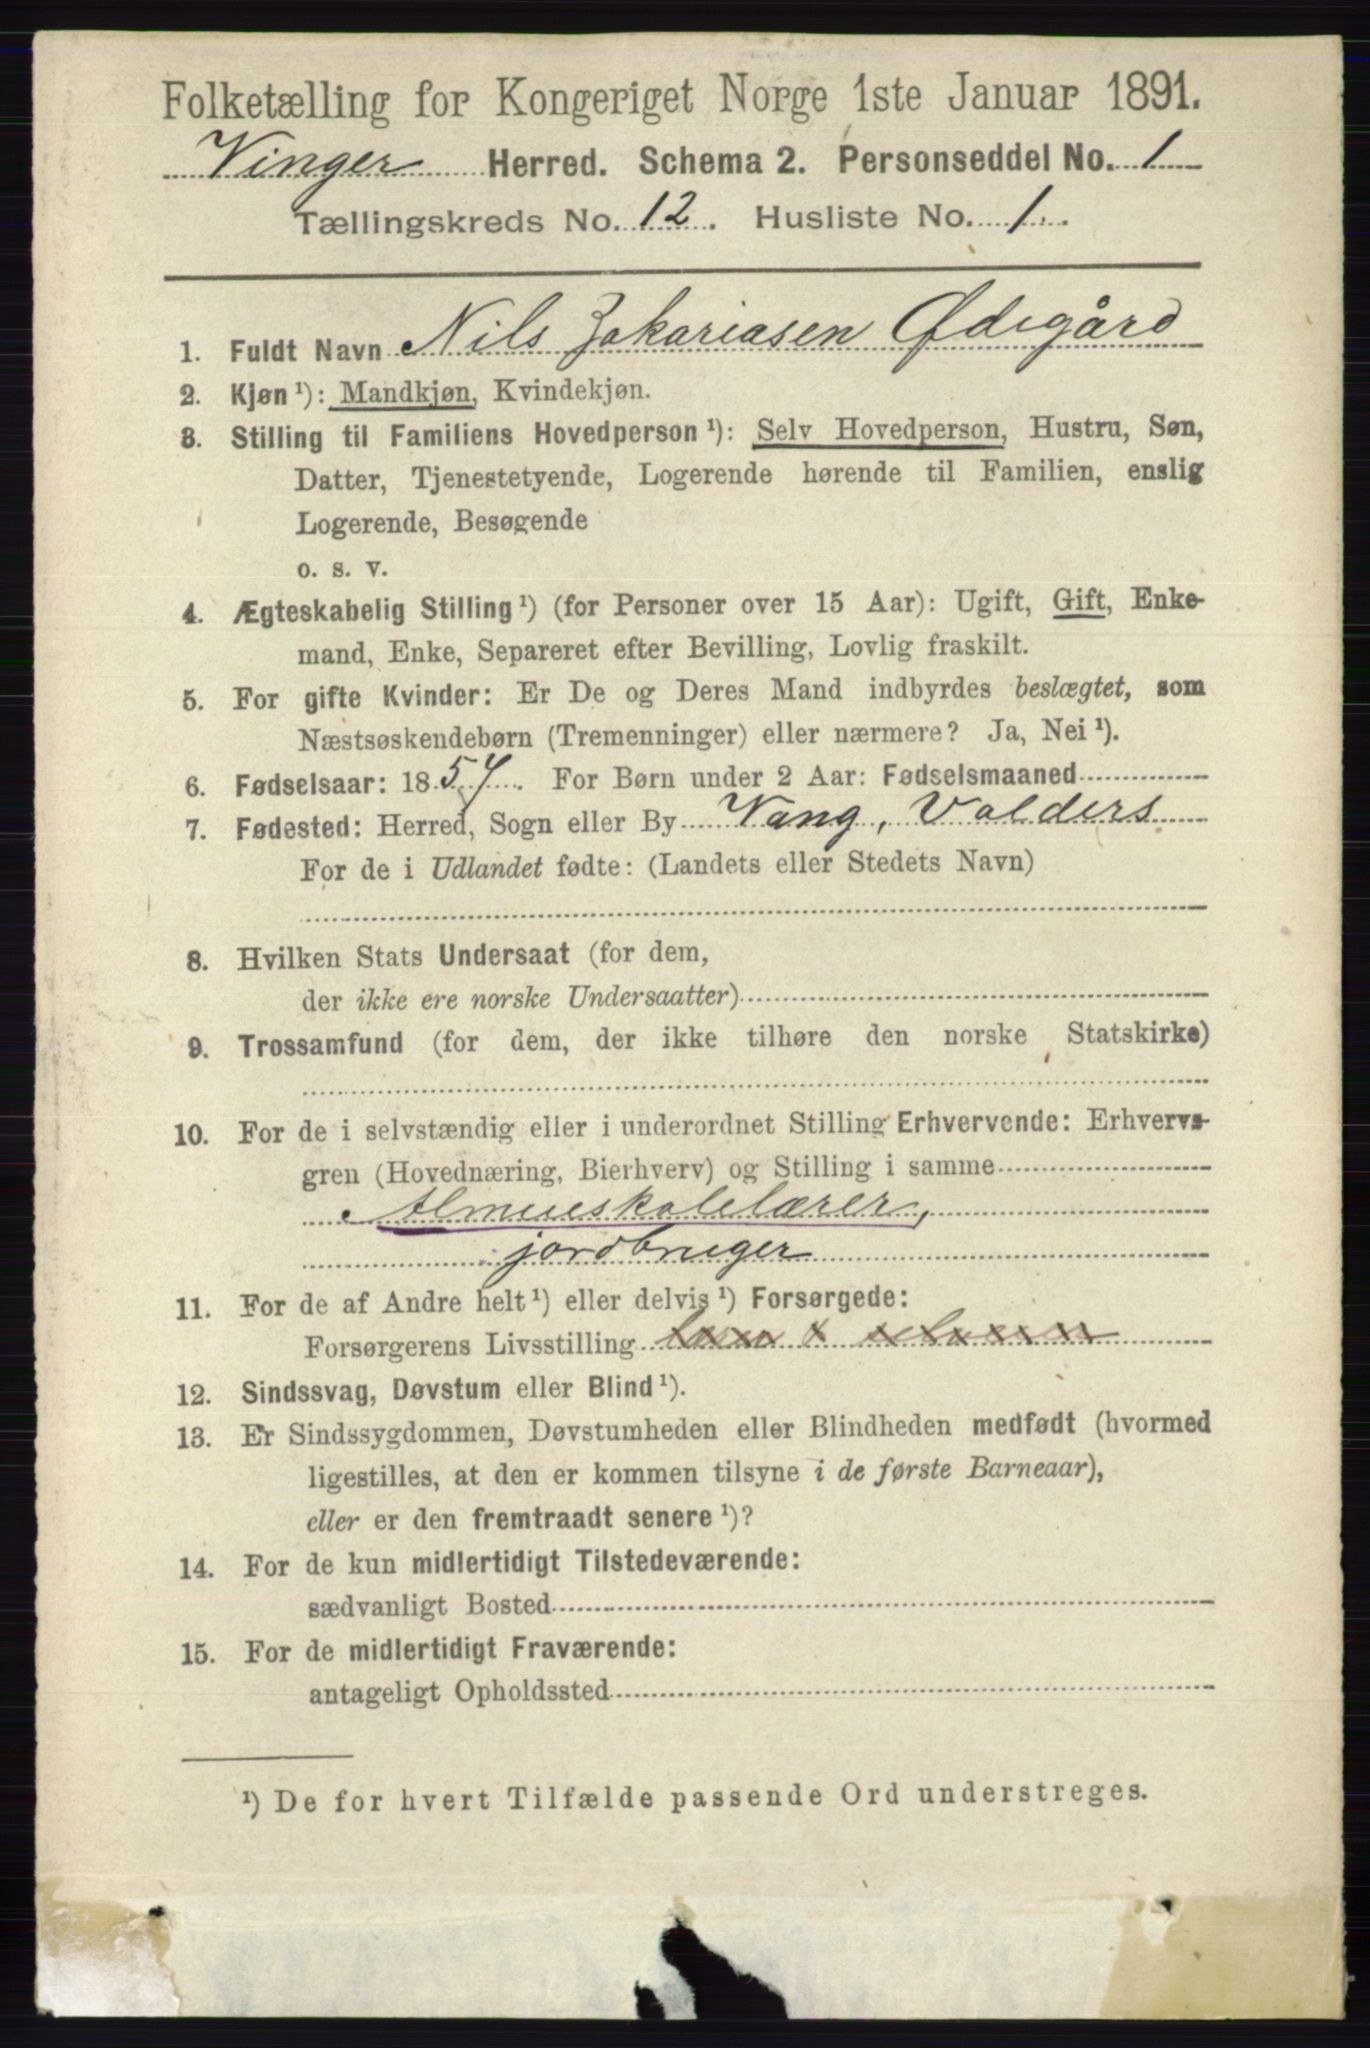 Folketælling for Kongeriget Norge 1ste Januar 1891.
Vinger Herred. Schema 2. Personseddel No. 1
Tællingskreds No. 12. Husliste No. 1.
1. Fuldt Navn Nils Zakariasen Ødegård
2. Kjøn ¹): Mandkjøn, Kvindekjøn.
3. Stilling til Familiens Hovedperson ¹): Selv Hovedperson, Hustru, Søn,
Datter, Tjenestetyende, Logerende hørende til Familien, enslig
Logerende, Besøgende
o. s. v.
4. Ægteskabelig Stilling ¹) (for Personer over 15 Aar): Ugift, Gift, Enke-
mand, Enke, Separeret efter Bevilling, Lovlig fraskilt.
5. For gifte Kvinder: Er De og Deres Mand indbyrdes beslægtet, som
Næstsøskendebørn (Tremenninger) eller nærmere? Ja, Nei ¹).
6. Fødselsaar: 1857. For Børn under 2 Aar: Fødselsmaaned
7. Fødested: Herred, Sogn eller By Vang, Valders
For de i Udlandet fødte: (Landets eller Stedets Navn)
8. Hvilken Stats Undersaat (for dem,
der ikke ere norske Undersaatter)
9. Trossamfund (for dem, der ikke tilhøre den norske Statskirke)
10. For de i selvstændig eller i underordnet Stilling Erhvervende: Erhvervs-
gren (Hovednæring, Bierhverv) og Stilling i samme
Almueskolelærer,
jordbruger
11. For de af Andre helt ¹) eller delvis ¹) Forsørgede:
Forsørgerens Livsstilling
12. Sindssvag, Døvstum eller Blind ¹).
13. Er Sindssygdommen, Døvstumheden eller Blindheden medfødt (hvormed
ligestilles, at den er kommen tilsyne i de første Barneaar),
eller er den fremtraadt senere ¹)?
14. For de kun midlertidigt Tilstedeværende:
sædvanligt Bosted
15. For de midlertidigt Fraværende:
antageligt Opholdssted
¹) De for hvert Tilfælde passende Ord understreges.